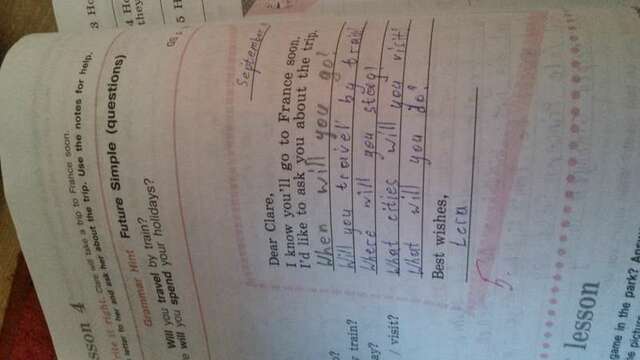 sson 4
Clare will take a trip to France soon.
to her and ask her about the trip. Use the notes for help.
Grammar Hint Future Simple (questions)
Will you travel by train?
will you spend your holidays?
September
Dear Clare,
I know you'll go to France soon.
I'd like to ask you about the trip.
When will you go?
Will you travel by
Where will you stay?
What cities will you visit?
What will you do?
Best wishes,
Lera
train?
/ visit?
5
lesson
game in the park?
3 H
4 H
they
5 H